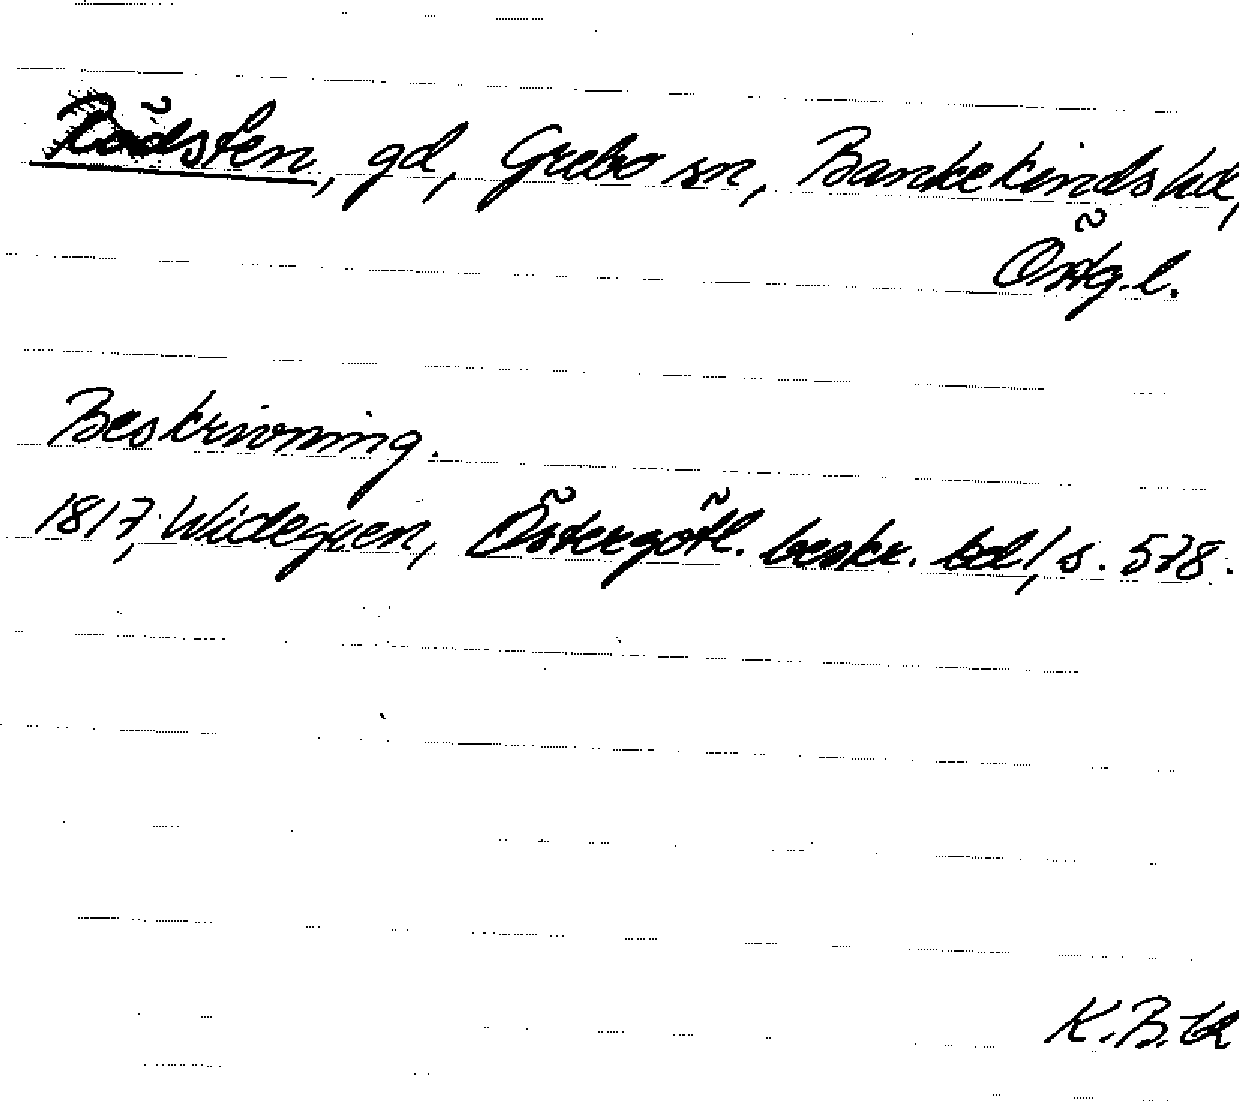 Rödsten, gd, Grebo sn, Bankekinds hd,
Östg. l.
Beskrivning.
1817, Widegren, Östergötl. beskr. bd 1, s. 578.
K.B.